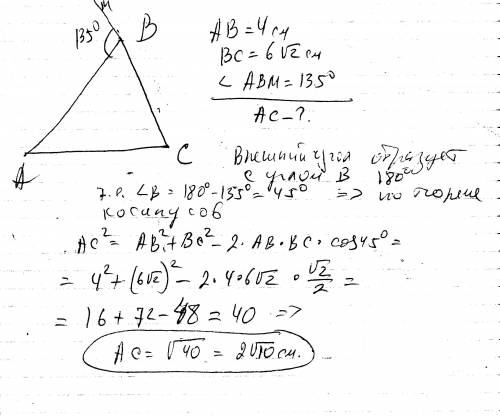 M
135° B
A
C
AB = 4 см
BC = 6√2 см
∠ ABM = 135°
AC - ?
Внешний угол образует
с углом B 180°
т.е. ∠B = 180° - 135° = 45° => по теореме
косинусов
AC² = AB² + BC² - 2 · AB · BC · cos45° =
= 4² + (6√2)² - 2 · 4 · 6√2 · √2/2 =
= 16 + 72 - 48 = 40 =>
AC = √40 = 2√10 см.